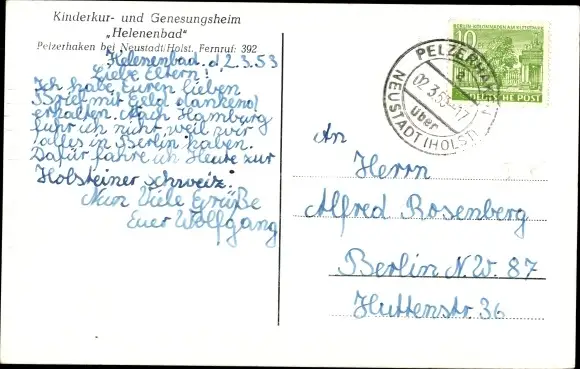 Kinderkur- und Genesungsheim
„Helenenbad"
Pelzerhaken bei Neustadt/Holst. Fernruf: 392
Helenenbad. d, 2.3.53
Liebe Eltern!
Ich habe Euren lieben
Brief mit Geld dankend
erhalten. Nach Hamburg
fuhr ich nicht, weil wir
alles in Berlin haben.
Dafür fahre ich Heute zur
Holsteiner Schweiz.
Nun Viele Grüße
Euer Wolfgang
10
DEUTSCHE POST
PELZERHAKEN
a
02.3.53-17
über
NEUSTADT (HOLST)
An
Herrn
Alfred Rosenberg
Berlin N.W. 87
Huttenstr. 36